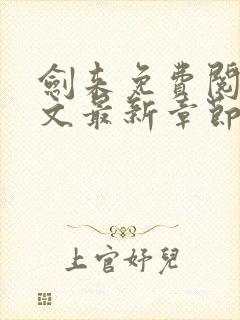 劍来免費閱
文最新章節
上官好兒